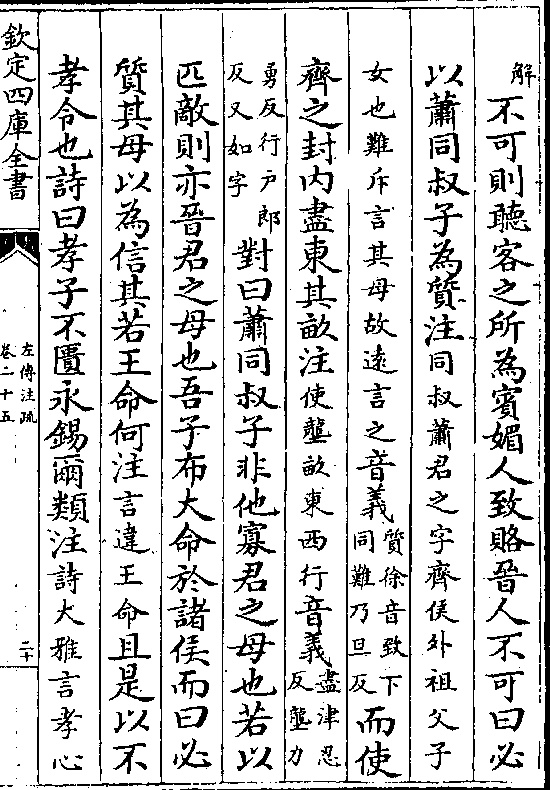 解不可則聽客之所為賓媚人致賂晉人不可曰必
以蕭同叔子為質注同叔蕭君之字齊侯外祖父子
女也難斥言其母故遠言之音義質徐音致下同難乃旦反而使
齊之封内盡東其畝注使壟畝東西行音義盡津忍反壟力
勇反行户郎反又如字對曰蕭同叔子非他寡君之母也若以
匹敵則亦晉君之母也吾子布大命於諸侯而曰必
質其母以為信其若王命何注言違王命且是以不
孝令也詩曰孝子不匱永錫爾類注詩大雅言孝心
欽定四庫全書
左傳注疏
卷二十五
二十